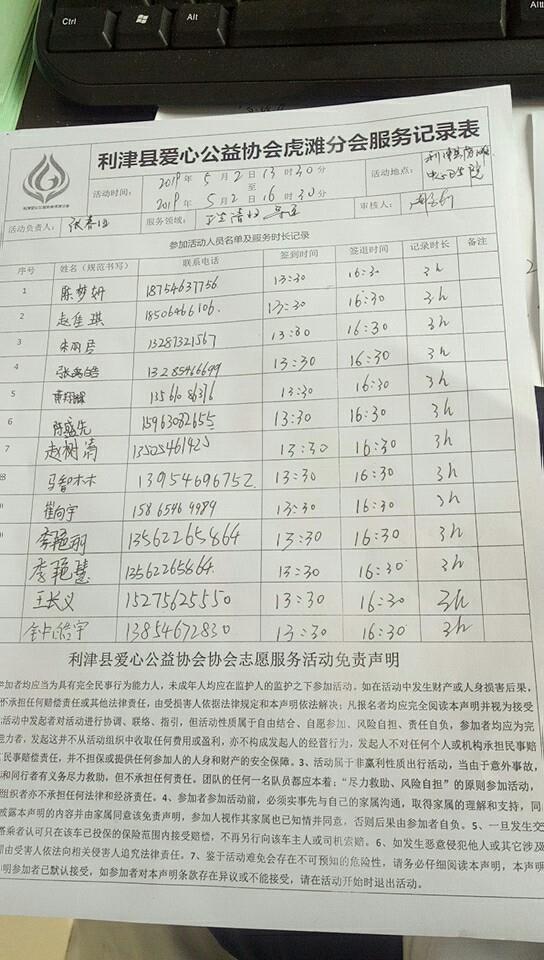 Ctrl
Alt
利津县爱心公益协会虎滩分会服务记录表
利津县爱心公益协会虎滩分会
活动时间：
2019年5月2日13时30分
至
2019年5月2日16时30分
活动地点：
利津县
中心卫生院
活动负责人：
服务领域：
审核人：
参加活动人员名单及服务时长记录
序号 姓名（规范书写） 联系电话 签到时间 签退时间 记录时长 备注
1 陈梦妍 18754637756 13:30 16:30 3h
2 赵佳琪 18506466106. 13:30 16:30 3h
3 13287321567 13:30 16:30 3h
4 13285466699 13:30 16:30 3h
5 13561086316 13:30 16:30 3h
6 15963082655 13:30 16:30 3h
7 赵树清 13505461425 13:30 16:30 3h
8 马智木木 13954696752. 13:30 16:30 3h
崔向宇 15865469989 13:30 16:30 3h
李艳丽 13562265864 13:30 16:30 3h
李艳慧 13562265864. 13:30 16:30 3h
王长义 15275625550 13:30 16:30 3h
13854672830 13:30 16:30 3h
利津县爱心公益协会协会志愿服务活动免责声明
参加者均应当为具有完全民事行为能力人，未成年人均应在监护人的监护之下参加活动，如在活动中发生财产或人身损害后果，
不承担任何赔偿责任或其他法律责任，由受损害人依据法律规定和本声明依法解决；凡报名者均应完全阅读本声明并视为接受
活动中发起者对活动进行协调、联络、指引，但活动性质属于自由结合、自愿参加、风险自担、责任自负，参加者均应为完
能力者，发起这并不从活动组织中收取任何费用或盈利，亦不构成发起人的经营行为，发起人不对任何个人或机构承担民事赔
民事赔偿责任，并不担保或提供任何参加人的人身和财产的安全保障。3、活动属于非赢利性质出行活动，当由于意外事故，
和同行者有义务尽力救助，但不承担任何责任。团队的任何一名队员都应本着：“尽力救助、风险自担”的原则参加活动，
组织者亦不承担任何法律和经济责任。4、参加者参加活动前，必须实事先与自己的家属沟通，取得家属的理解和支持，同
被露本声明的内容并由家属同意该免责声明，参加人视作其家属也已知情并同意，否则后果由参加者自负。5、一旦发生交
搭乘者认可只在该车已投保的保险范围内接受赔偿，不再另行向该车主人或司机索赔。6、如发生恶意侵犯他人或其它涉及
即由受害人依法向相关侵害人追究法律责任。7、鉴于活动难免会存在不可预知的危险性，请务必仔细阅读本声明，本声明
明参加者已默认接受，如参加者对本声明条款存在异议或不能接受，请在活动开始时退出活动。